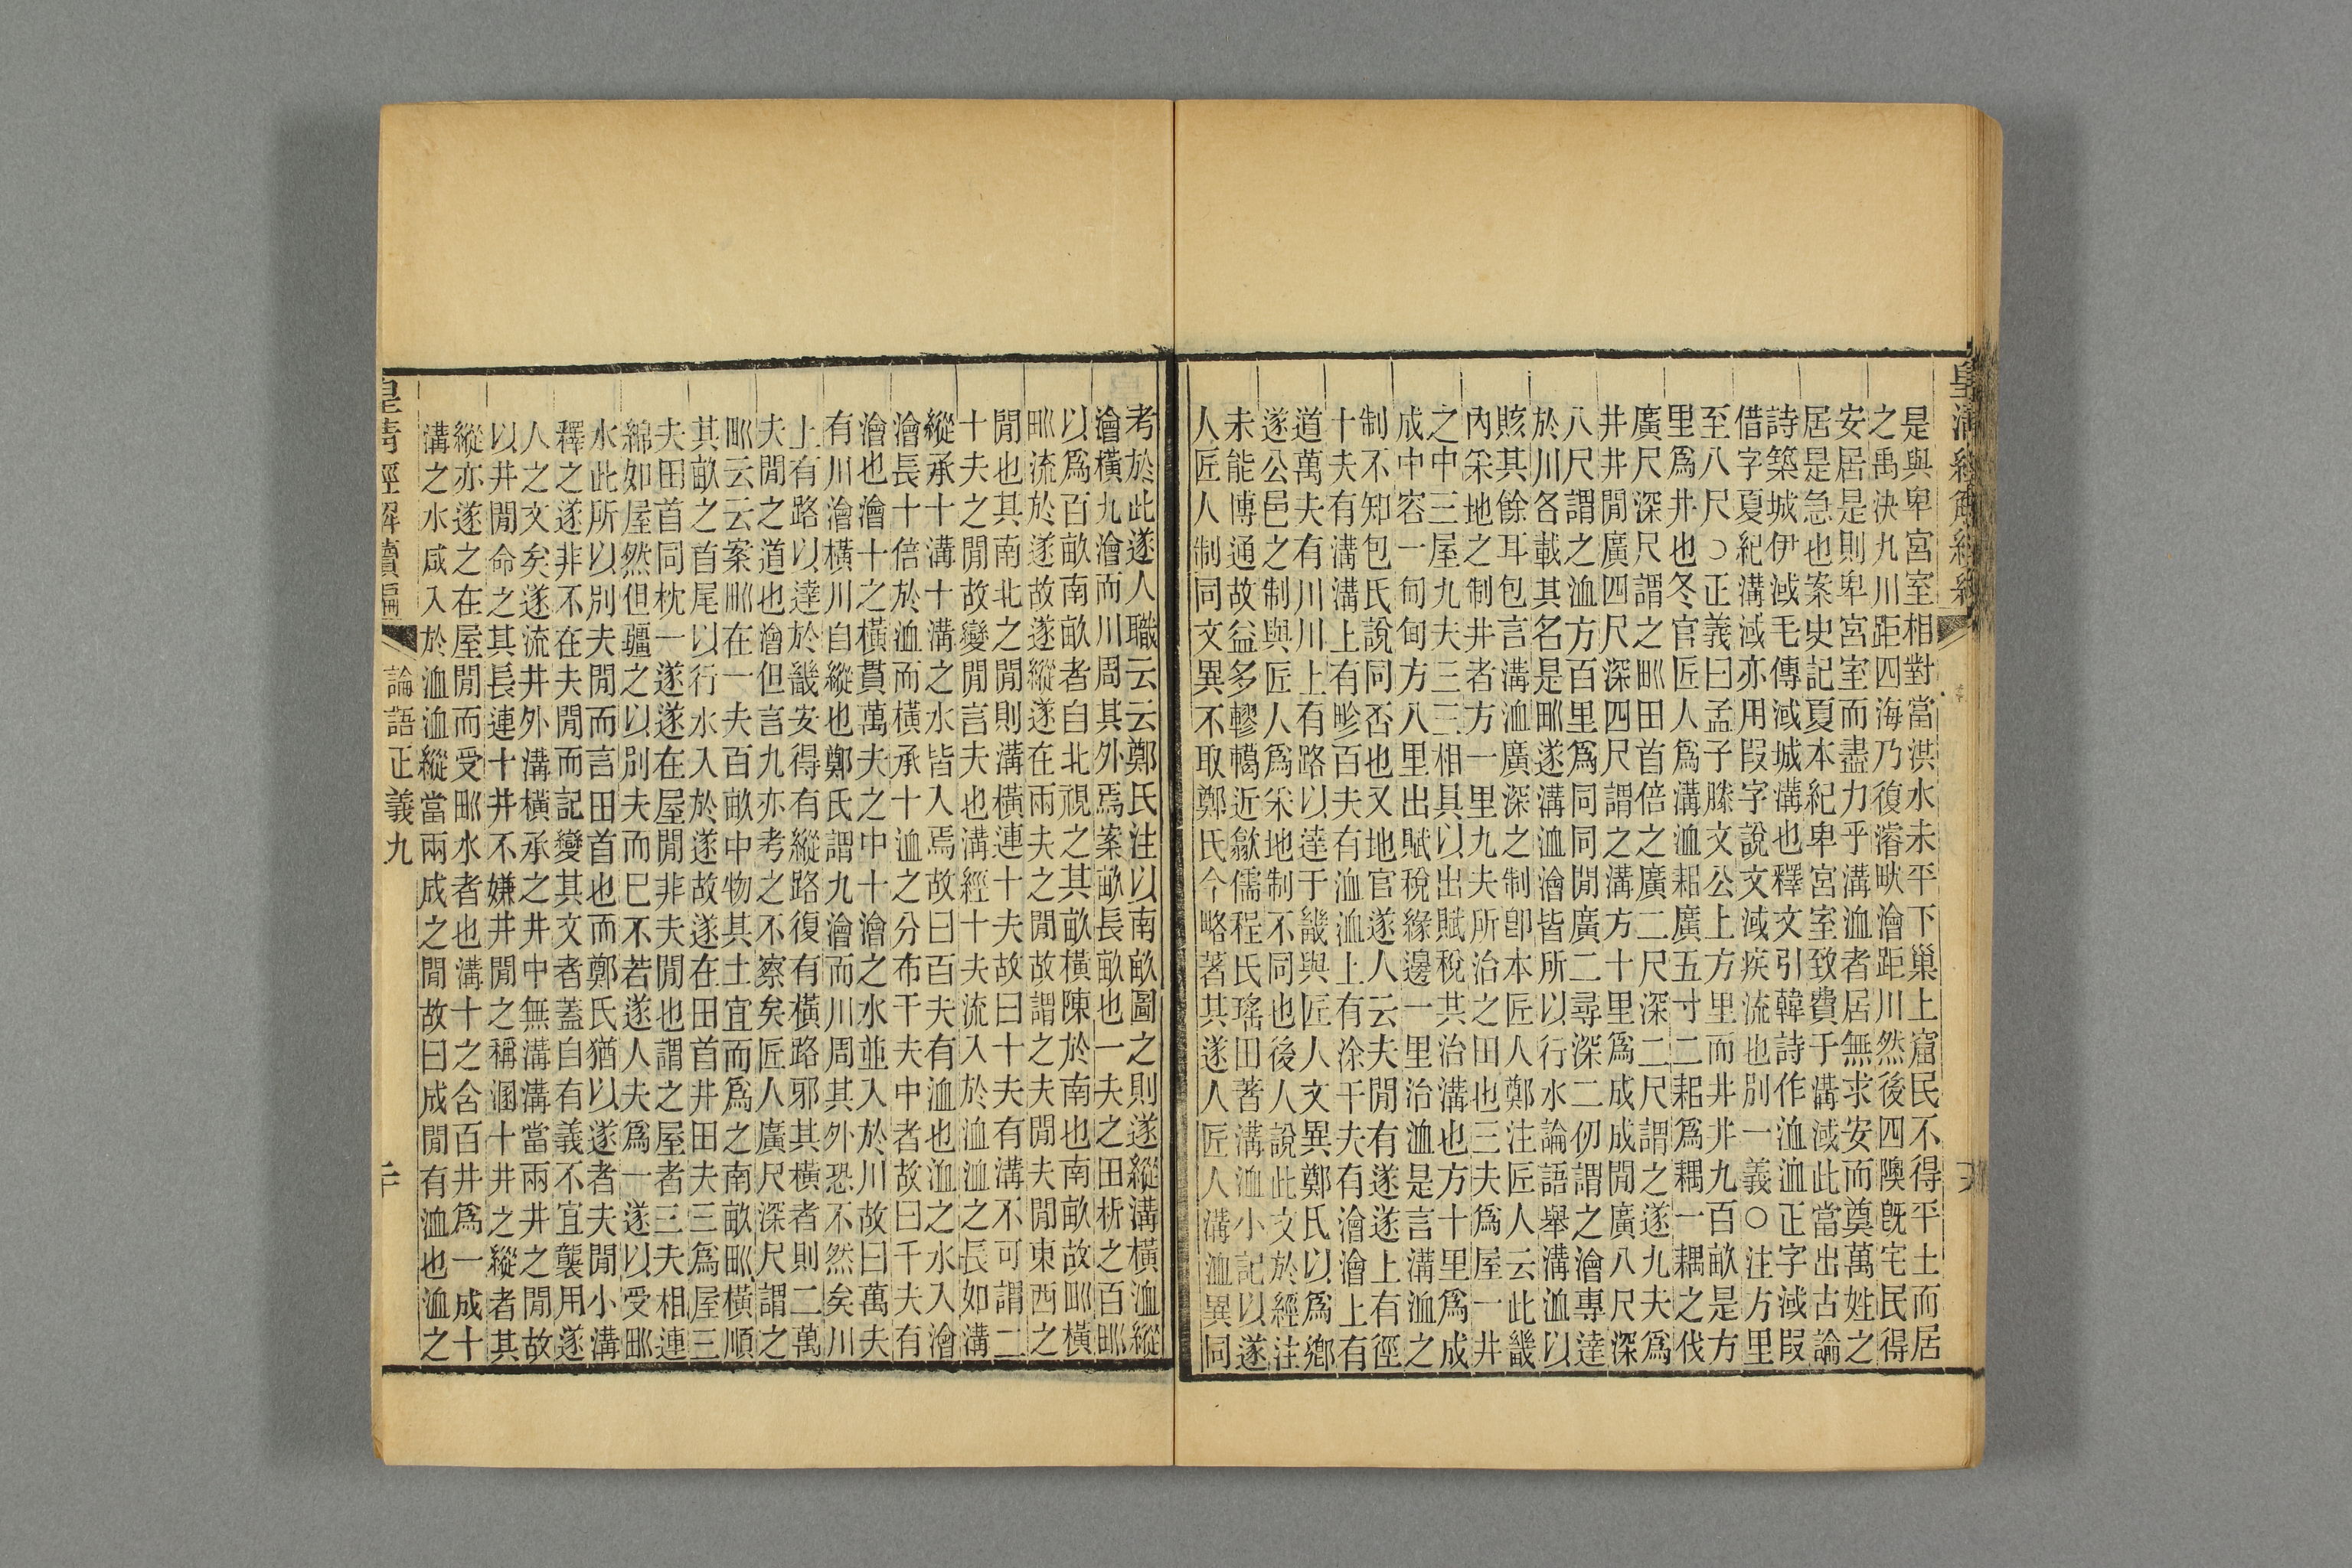 是與卑宮室相對當洪水未平下巢上窟民不得平土而居
之禹決九川距四海乃復濬畎澮距川然後四隩既宅民得
安居是則卑宮室而盡力乎溝洫者居無求安而奠萬姓之
居是急也案史記夏本紀卑宮室致費于溝淢此當出古論
詩築城伊淢毛傳淢城溝也釋文引韓詩作洫洫正字淢叚
借字夏紀溝淢亦用叚字說文淢疾流也別一義○注方里
至八尺○正義曰孟子滕文公上方里而井井九百畝是方
里爲井也冬官匠人爲溝洫耜廣五寸二耜爲耦一耦之伐
廣尺深尺謂之𤰕田首倍之廣二尺深二尺謂之遂九夫爲
井井閒廣四尺深四尺謂之溝方十里爲成成閒廣八尺深
八尺謂之洫方百里爲同同閒廣二尋深二仞謂之澮專達
於川各載其名是𤰕遂溝洫澮皆所以行水論語舉溝洫以
賅其餘耳包言溝洫廣深之制卽本匠人鄭注匠人云此畿
內采地之制井者方一里九夫所治之田也三夫爲屋一井
之中三屋九夫三三相具以出賦稅共治溝也方十里爲成
成中容一甸甸方八里出賦稅緣邊一里治洫是言溝洫之
制不知包氏說同否也又地官遂人云夫閒有遂遂上有徑
十夫有溝溝上有畛百夫有洫洫上有涂千夫有澮澮上有
道萬夫有川川上有路以達于畿與匠人文異鄭氏以爲鄉
遂公邑之制與匠人爲采地制不同也後人說此文於經注
未能博通故益多轇轕近歙儒程氏瑤田著溝洫小記以遂
人匠人制同文異不取鄭氏今略著其遂人匠人溝洫異同
考於此遂人職云云鄭氏注以南畝圖之則遂縱溝橫洫縱
澮橫九澮而川周其外焉案畝長畝也一夫之田析之百𤰕
以爲百畝南畝者自北視之其畝橫陳於南也南畝故𤰕橫
𤰕流於遂故遂縱遂在兩夫之閒故謂之夫閒夫閒東西之
閒也其南北之閒則溝橫連十夫故曰十夫有溝不可謂二
十夫之閒故變閒言夫也溝經十夫流入於洫洫之長如溝
縱承十溝十溝之水皆入焉故曰百夫有洫也洫之水入澮
澮長十倍於洫而橫承十洫之分布千夫中者故曰千夫有
澮也澮十之橫貫萬夫之中十澮之水並入於川故曰萬夫
有川澮橫川自縱也鄭氏謂九澮而川周其外恐不然矣川
上有路以達於畿安得有縱路復有橫路邪其橫者則二萬
夫閒之道也澮但言九亦考之不察矣匠人廣尺深尺謂之
𤰕云云案𤰕在一夫百畝中物其土宜而爲之南畝𤰕橫順
其畝之首尾以行水入於遂故遂在田首井田夫三爲屋三
夫田首同枕一遂遂在屋閒非夫閒也謂之屋者三夫相連
綿如屋然但疆之以別夫而巳不若遂人夫爲一遂以受𤰕
水此所以別夫閒而言田首也而鄭氏猶以遂者夫閒小溝
釋之遂非不在夫閒而記變其文者蓋自有義不宜襲用遂
人之文矣遂流井外溝橫承之井中無溝溝當兩井之閒故
以井閒命之其長連十井不嫌井閒之稱溷十井之縱者其
縱亦遂之在屋閒而受𤰕水者也溝十之含百井爲一成十
溝之水咸入於洫洫縱當兩成之閒故曰成閒有洫也洫之
皇清經解續編 論語正義九